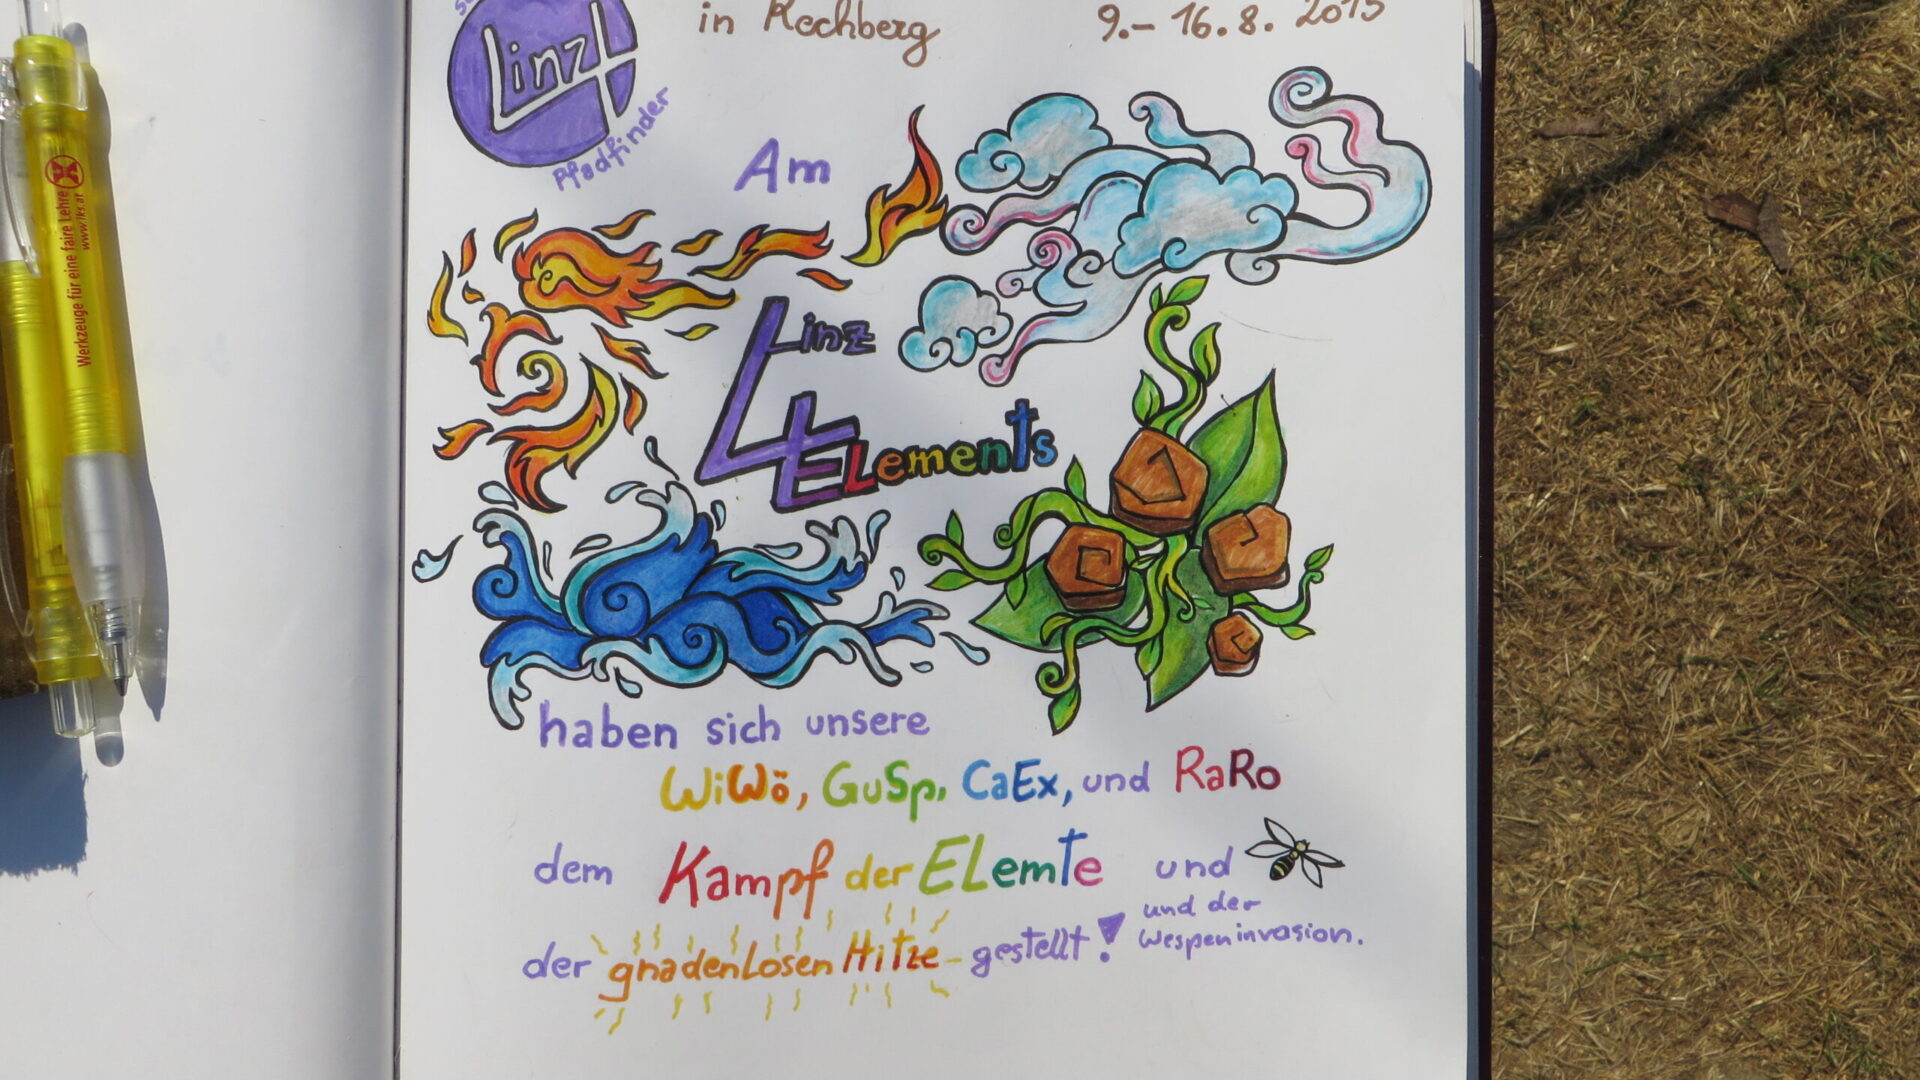 in Rechberg
9.- 16.8. 2015
Linz 4
Pfadfinder
Am
Linz
4 ELements
haben sich unsere
WiWö, GuSp, CaEx, und RaRo
dem Kampf der ELemte und
der gnadenLosen Hitze gestellt!
und der
Wespeninvasion.
Werkzeuge für eine faire Lehre
www.lks.at